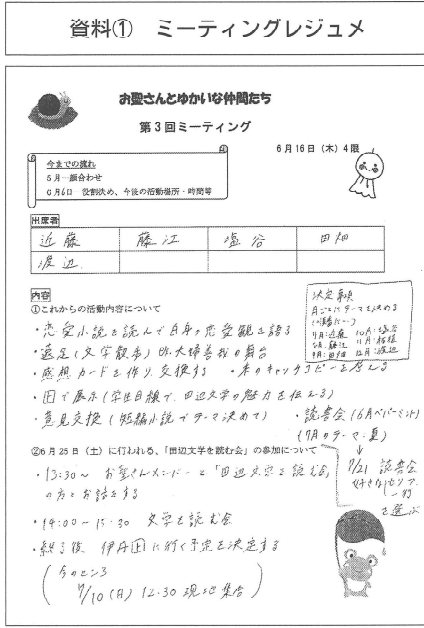 資料① ミーティングレジュメ
お聖さんとゆかいな仲間たち
第3回ミーティング
6月16日（木）4限
今までの流れ
5月―顔合わせ
6月6日―役割決め、今後の活動場所・時間等
出席者
近藤 藤江 塩谷 田畑
渡辺
内容
①これからの活動内容について
・恋愛小説を読んで自身の恋愛観を語る
・遠足（文学散歩）
・感想カードを作り、交換する ・本のキャッチコピーを考える
・図で展示（学生目線で、田辺文学の魅力を伝える）
・意見交換（短編小説でテーマ決めて） ・読書会（6月
（7月のテーマ・夏）
決定事項
月ごとにテーマを決める
7/21 読書会
好きな
を選ぶ
②6月25日（土）に行われる、「田辺文学を読む会」の参加について
・13:30～ お聖さんメンバーと「田辺文学を読む会」
の方とお話をする
・14:00～15:30 文学を読む会
・終了後 伊丹図に行く予定を決定する
（今のところ
7/10（日）12:30 現地集合）